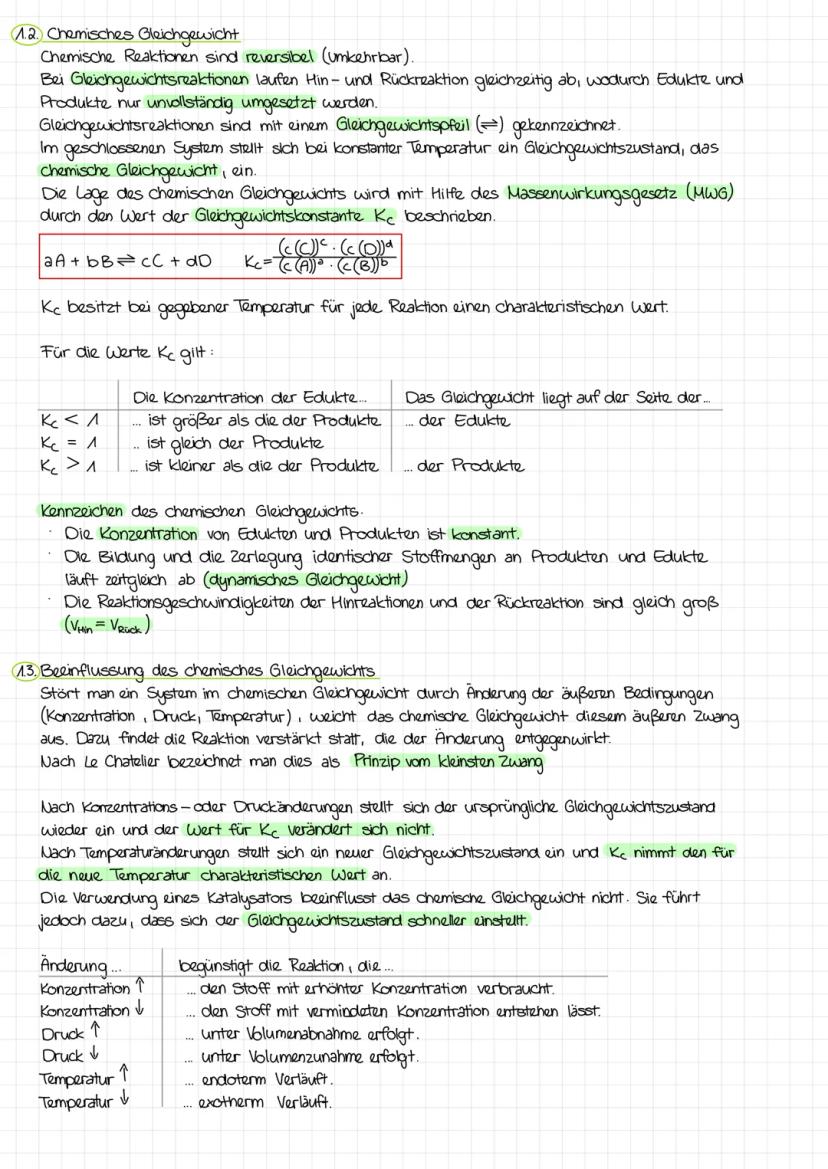 1.2. Chemisches Gleichgewicht
Chemische Reaktionen sind reversibel (umkehrbar).
Bei Gleichgewichtsreaktionen laufen Hin- und Rückreaktion gleichzeitig ab, wodurch Edukte und
Produkte nur unvollständig umgesetzt werden.
Gleichgewichtsreaktionen sind mit einem Gleichgewichtspfeil (⇌) gekennzeichnet.
Im geschlossenen System stellt sich bei konstanter Temperatur ein Gleichgewichtszustand, das
chemische Gleichgewicht, ein.
Die Lage des chemischen Gleichgewichts wird mit Hilfe des Massenwirkungsgesetz (MWG)
durch den Wert der Gleichgewichtskonstante Kc beschrieben.
aA + bB ⇌ cC + dD Kc = (c(C))^c · (c(D))^d / (c(A))^a · (c(B))^b
Kc besitzt bei gegebener Temperatur für jede Reaktion einen charakteristischen Wert.
Für die Werte Kc gilt:
Die Konzentration der Edukte... Das Gleichgewicht liegt auf der Seite der...
Kc < 1 ... ist größer als die der Produkte ... der Edukte
Kc = 1 .. ist gleich der Produkte
Kc > 1 ... ist kleiner als die der Produkte ... der Produkte
Kennzeichen des chemischen Gleichgewichts.
· Die Konzentration von Edukten und Produkten ist konstant.
· Die Bildung und die Zerlegung identischer Stoffmengen an Produkten und Edukte
läuft zeitgleich ab (dynamisches Gleichgewicht)
· Die Reaktionsgeschwindigkeiten der Hinreaktionen und der Rückreaktion sind gleich groß
(VHin = VRück)
1.3. Beeinflussung des chemisches Gleichgewichts
Stört man ein System im chemischen Gleichgewicht durch Änderung der äußeren Bedingungen
(Konzentration, Druck, Temperatur), weicht das chemische Gleichgewicht diesem äußeren Zwang
aus. Dazu findet die Reaktion verstärkt statt, die der Änderung entgegenwirkt.
Nach Le Chatelier bezeichnet man dies als Prinzip vom kleinsten Zwang
Nach Konzentrations-oder Druckänderungen stellt sich der ursprüngliche Gleichgewichtszustand
wieder ein und der Wert für Kc verändert sich nicht.
Nach Temperaturänderungen stellt sich ein neuer Gleichgewichtszustand ein und Kc nimmt den für
die neue Temperatur charakteristischen Wert an.
Die Verwendung eines Katalysators beeinflusst das chemische Gleichgewicht nicht. Sie führt
jedoch dazu, dass sich der Gleichgewichtszustand schneller einstellt.
Änderung... begünstigt die Reaktion, die...
Konzentration ↑ ... den Stoff mit erhöhter Konzentration verbraucht.
Konzentration ↓ ... den Stoff mit vermindeten Konzentration entstehen lässt.
Druck ↑ ... unter Volumenabnahme erfolgt.
Druck ↓ ... unter Volumenzunahme erfolgt.
Temperatur ↑ ... endoterm Verläuft.
Temperatur ↓ ... exotherm Verläuft.